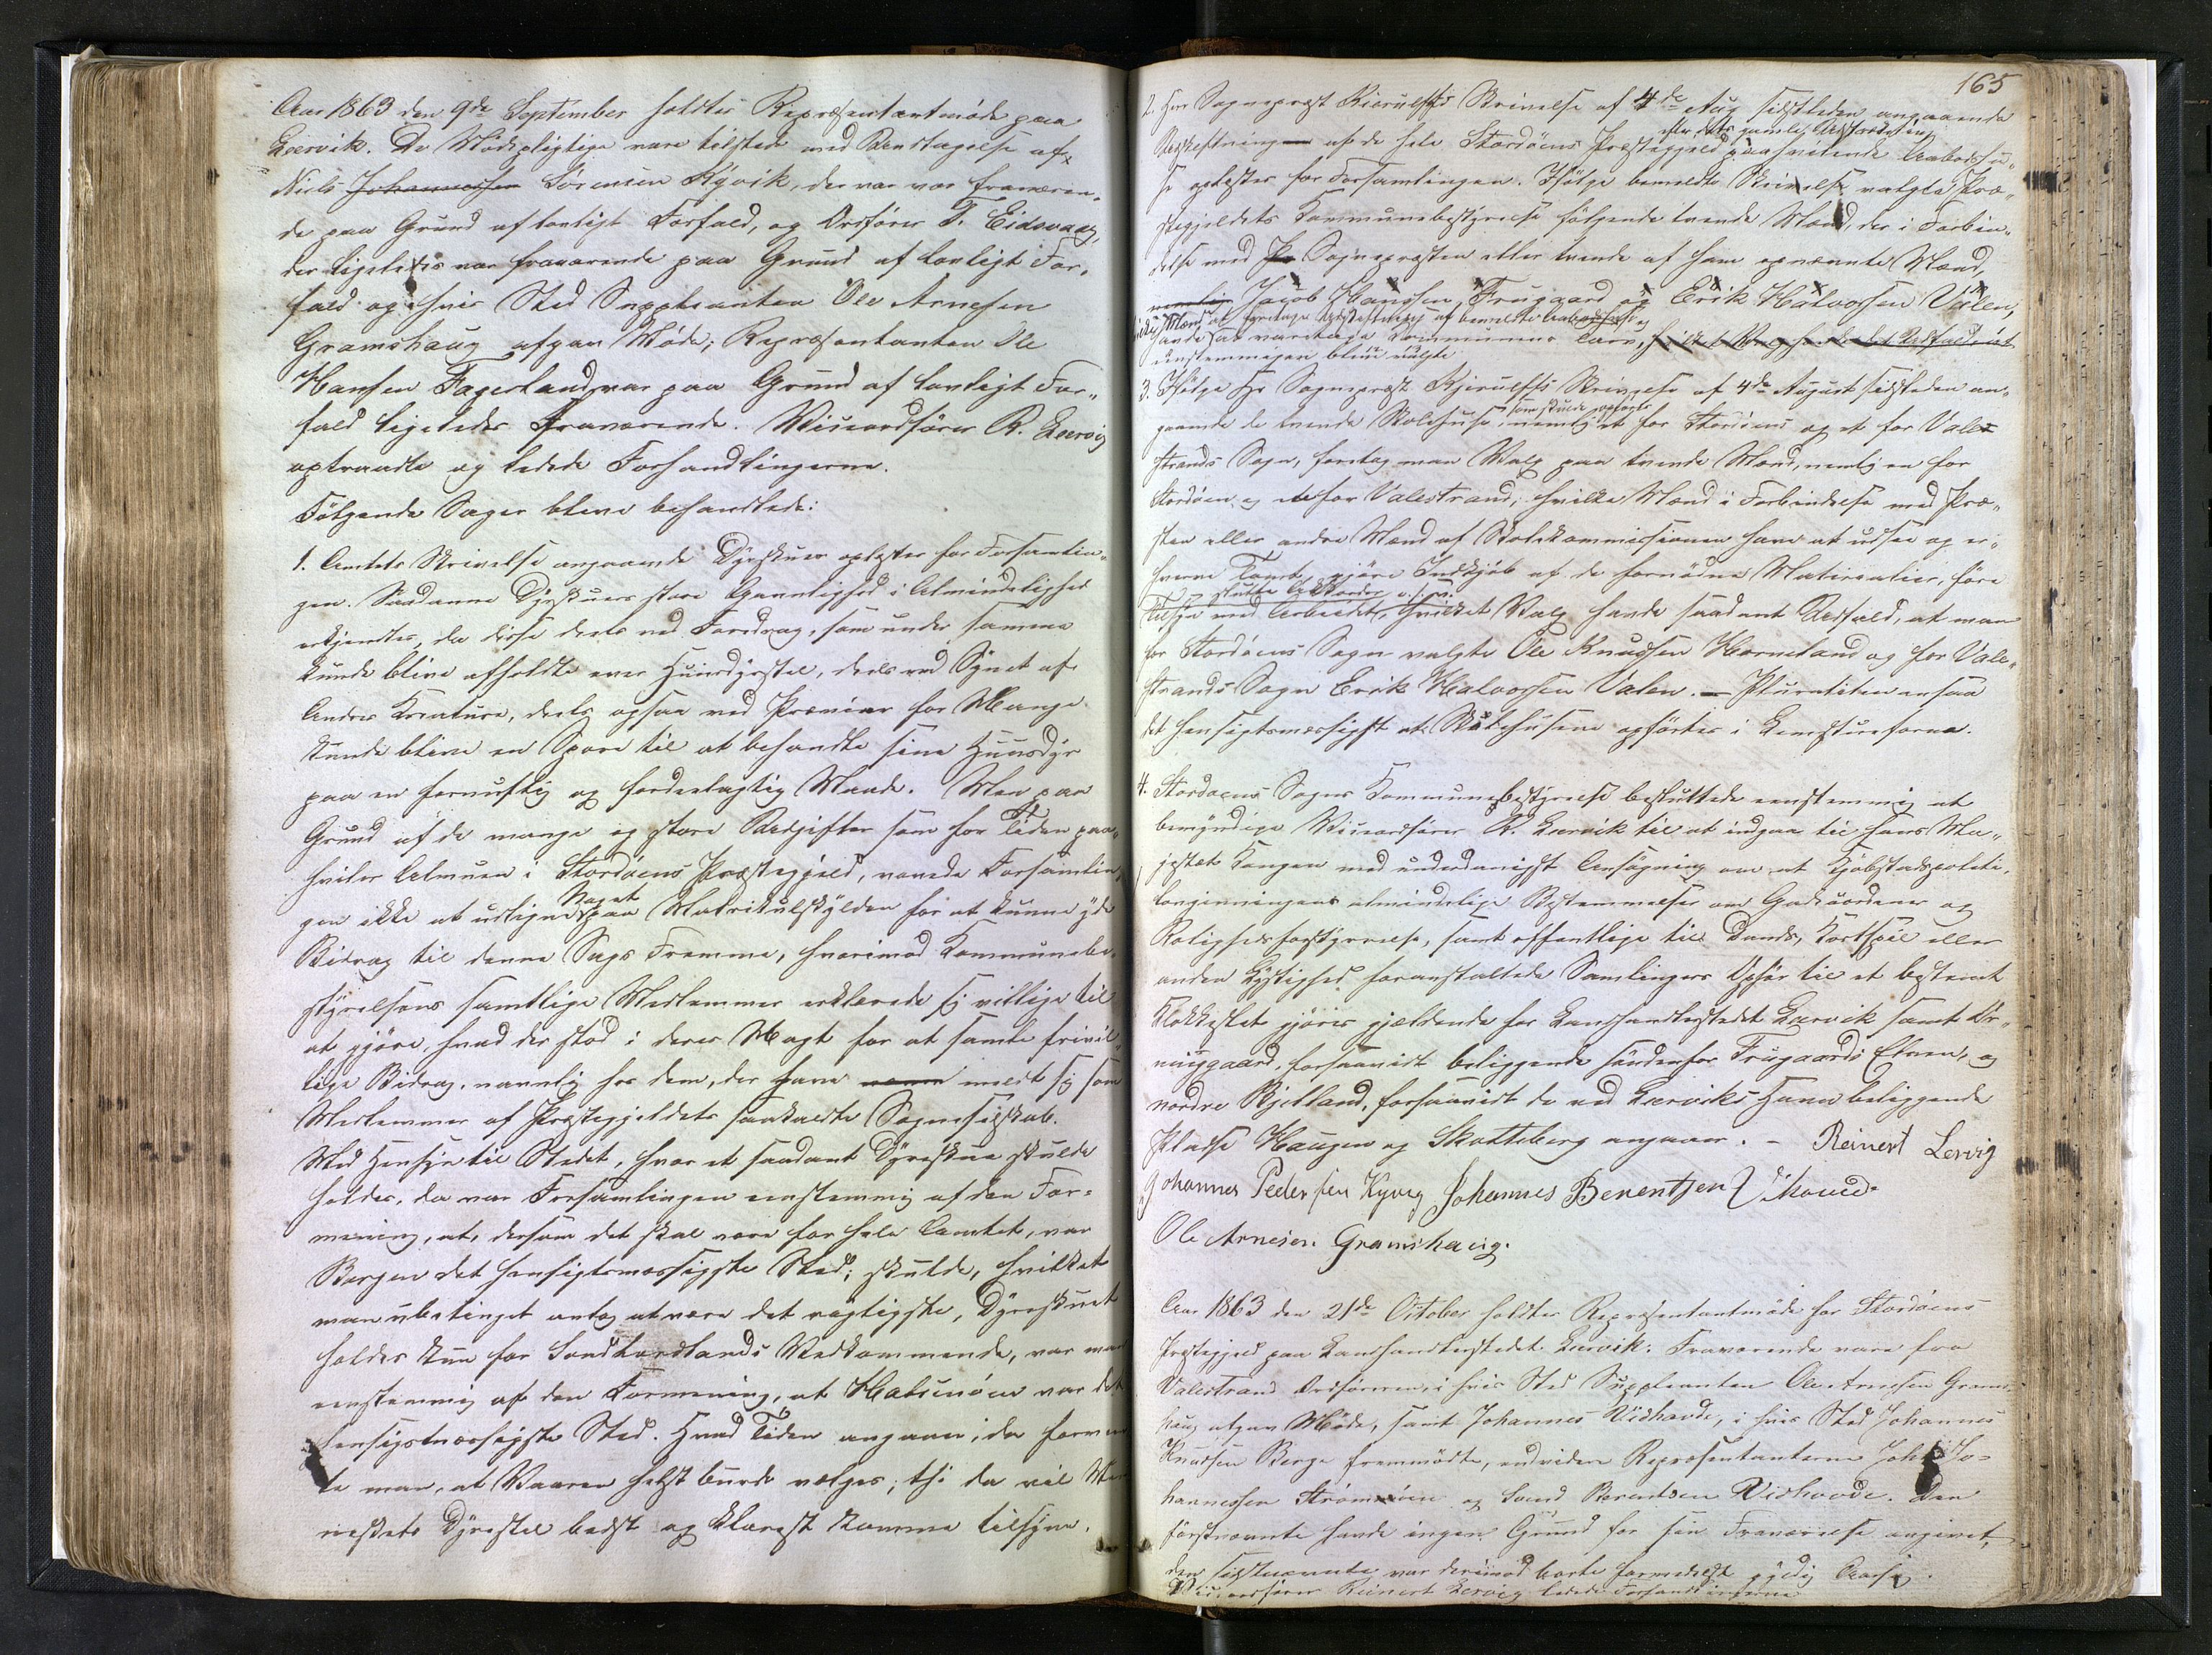 Aar 1863 den 9de September holdtes Repræsentantmøde paa
Leervik. De Mødepligtige vare tilstede med Undtagelse af
Niels Johannessen Sørensen Kyvik, der var fraværen-
de paa Grund af lovligt Forfald, og Ordfører T. Eidsvaag,
der ligeledes var fraværende paa Grund af lovligt For-
fald og i hvis Sted Suppleanten Ole Arnesen
Gramshaug afgav Møde; Repræsentanten Ole
Hansen Fagerland var paa Grund af lovligt For-
fald ligeledes fraværende. Viceordfører R. Leervig
optraadte og ledede Forhandlingerne.
Følgende Sager bleve behandlede:
1. Amtets Skrivelse angaaende Dyrskuer oplæstes for Forsamlin-
gen. Saadanne Dyrskuers store Gavnlighed i Almindelighed
erkjendtes, da disse deels ved Foredrag, som under samme
kunde blive afholdte over Huusdyrstel, deels ved Synet af
Andres Kreature, deels ogsaa ved Præmier for Mange
kunde blive en Spore til at behandle sine Huusdyr
paa en fornuftig og fordeelagtig Maade. Men paa
Grund af de mange og store Udgifter som for Tiden paa-
hviler Almuen i Stordøens Præstegjeld, vovede Forsamlin-
gen ikke at udligne Noget paa Matrikulskylden for at kunne yde
Bidrag til denne Sags Fremme, hvorimod Kommunebe-
styrelsens samtlige Medlemmer erklærede sig villige til
at gjøre, hvad der stod i deres Magt for at samle frivil-
lige Bidrag, navnlig hos dem, der have meldt sig som
Medlemmer af Præstegjeldets saakaldte Sogneselskab.
Med Hensyn til Stedet, hvor et saadant Dyrskue skulde
holdes, da var Forsamlingen eenstemmig af den For-
mening, at, dersom det skal være for hele Amtet, var
Bergen det hensigtsmæssigste Sted; skulde, hvilket
man ubetinget antog at være det rigtigste, Dyrskuet
holdes kun for Søndhordlands Vedkommende, var man
eenstemmig af den Formening, at Halsnøen var det
hensigtsmæssigste Sted. Hvad Tiden angaaer, da formeen-
te man, at Vaaren helst burde vælges; thi da vil
Dyrestel bedst og klarest komme tilsyne.
165
2. Herr Sognepræst Kierulffs Skrivelse af 4de Aug. sidstleden angaaende
efter dets gamle Udstrækning
af de hele Stordøens Præstegjeld paahvilende Aabodshu-
se oplæstes for Forsamlingen. Ifølge bemeldte Skrivelse valgte Præ-
stegjeldets Kommunebestyrelse følgende tvende Mænd, der i Forbin-
delse med Sognepræsten eller tvende af ham opnævnte Mænd,
nemlig Jacob Hanssen Frugaard og Erik Halvorsen Valen,
hvilke Mænd at foretage af bemeldte
havde at varetage Kommunens Tarv,
eenstemmigen bleve valgte
3. Ifølge Hr Sognepræst Kjerulffs Skrivelse af 4de August sidstleden an-
gaaende de tvende Skolehuse som skulle opføres nemlig et for Stordøens og et for Vale-
strands Sogn, foretog man Valg paa tvende Mænd, nemlig en for
Stordøen og en for Valestrand, hvilke Mænd i Forbindelse med Præ-
sten eller andre Mænd af Skolekommissionen have at udsee og er-
hverve Tomt, gjøre Indkjøb af de fornødne Materialier, føre
slutte Akkorder o.s.v.
Tilsyn med Arbeidet, hvilket Valg havde saadant Udfald, at man
for Stordøens Sogn valgte Ole Knudsen Hørneland og for Vale-
strands Sogn Erik Halvorsen Valen. — Pluraliteten ansaa
det hensigtsmæssigst at Skolehusene opførtes i
4. Stordøens Sogns Kommunebestyrelse besluttede eenstemmig at
bemyndige Viceordfører R. Leervik til at indgaa til Hans Ma-
jestæt Kongen med underdanigst Ansøgning om at Kjøbstadspoliti-
lovgivningens almindelige Bestemmelser om Gadeuordener og
Rolighedsforstyrrelse, samt offentlige til Dands, Kortspil eller
anden Lystighed foranstaltede Samlingers Ophør til et bestemt
Klokkeslet gjøres gjældende for Landhandlerstedet Leervik samt Or-
ningsgaard, forsaavidt beliggende søndenfor Frugaards Elven, og
nordre Bjelland, forsaavidt de ved Leerviks Havn beliggende
Pladse Haugen og Skatteberg angaaer. – Reinert Lervig
Johannes Pedersen Kyvig Johannes Berentsen
Ole Arnesen Gramshaug.
Aar 1863 den 21de October holdtes Repræsentantmøde for Stordøens
Præstegjeld paa Landhandlerstedet Leervik. Fraværende vare fra
Valestrand Ordføreren, i hvis Sted Suppleanten Ole Arnesen Grams-
haug afgav Møde, samt Johannes Vidhovde, i hvis Sted Johannes
Knudsen Berge fremmødte, endvidere Repræsentanterne John Jo-
hannessen Strømøen og Svend Berentsen Vidhovde. Den
førstnævnte havde ingen Grund for sin Fraværelse angivet,
den sidstnævnte var derimod borte formedelst gyldig Aarsag.
Viceordfører Reinert Lervig ledede Forhandlingerne.